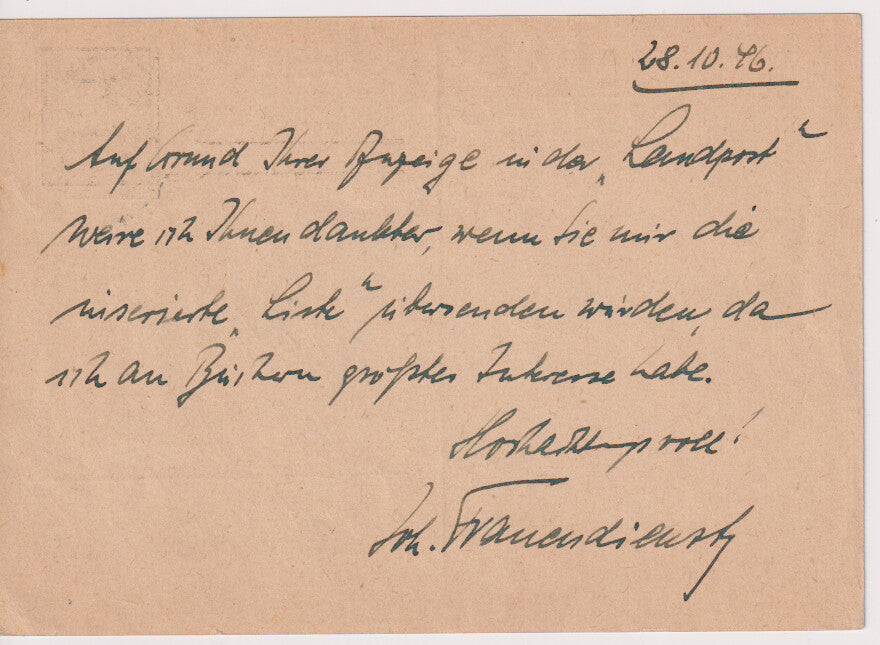 28.10.46.
Auf Grund Ihrer Anzeige in der „Landpost“
wäre ich Ihnen dankbar, wenn Sie mir die
inserierte „Liste“ übersenden würden, da
ich an Büchern größtes Interesse habe.
Hochachtungsvoll!
Joh. Frauendienst